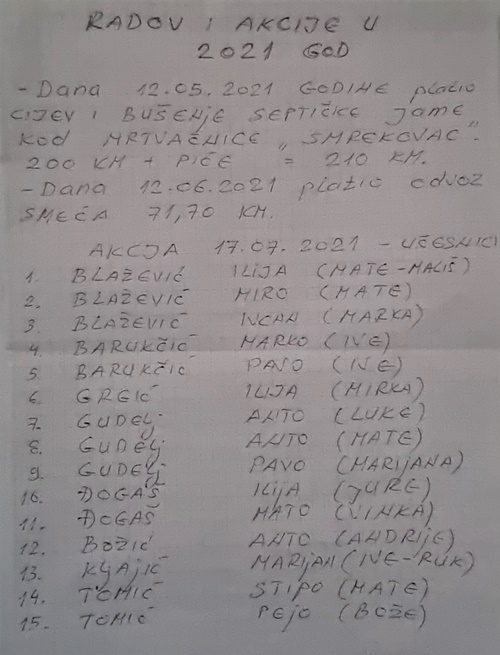 RADOVI I AKCIJE U
2021 GOD
- Dana 12.05.2021 GODINE platio
CIJEV I BUŠENJE SEPTIČKE jame
KOD MRTVAČNICE „SMREKOVAC".
200 KM + PIĆE = 210 KM.
- Dana 12.06.2021 platio odvoz
SMEĆA 71,70 KM.
AKCJA 17.07.2021 - UČESNICI
1. BLAŽEVIĆ ILIJA (MATE-MALIŠ)
2. BLAŽEVIĆ MIRO (MATE)
3. BLAŽEVIĆ IVCAN (MARKA)
4. BARUKČIĆ MARKO (IVE)
5. BARUKČIĆ PAVO (IVE)
6. GRGIĆ ILIJA (MIRKA)
7. GUDELJ ANTO (LUKE)
8. GUDELJ ANTO (MATE)
9. GUDELJ PAVO (MARIJANA)
10. ĐOGAŠ ILIJA (JURE)
11. ĐOGAŠ MATO (VINKA)
12. BOŽIĆ ANTO (ANDRIJE)
13. KLJAJIĆ MARIJAN (IVE-RUK)
14. TOMIĆ STIPO (MATE)
15. TOMIĆ PEJO (BOŽE)